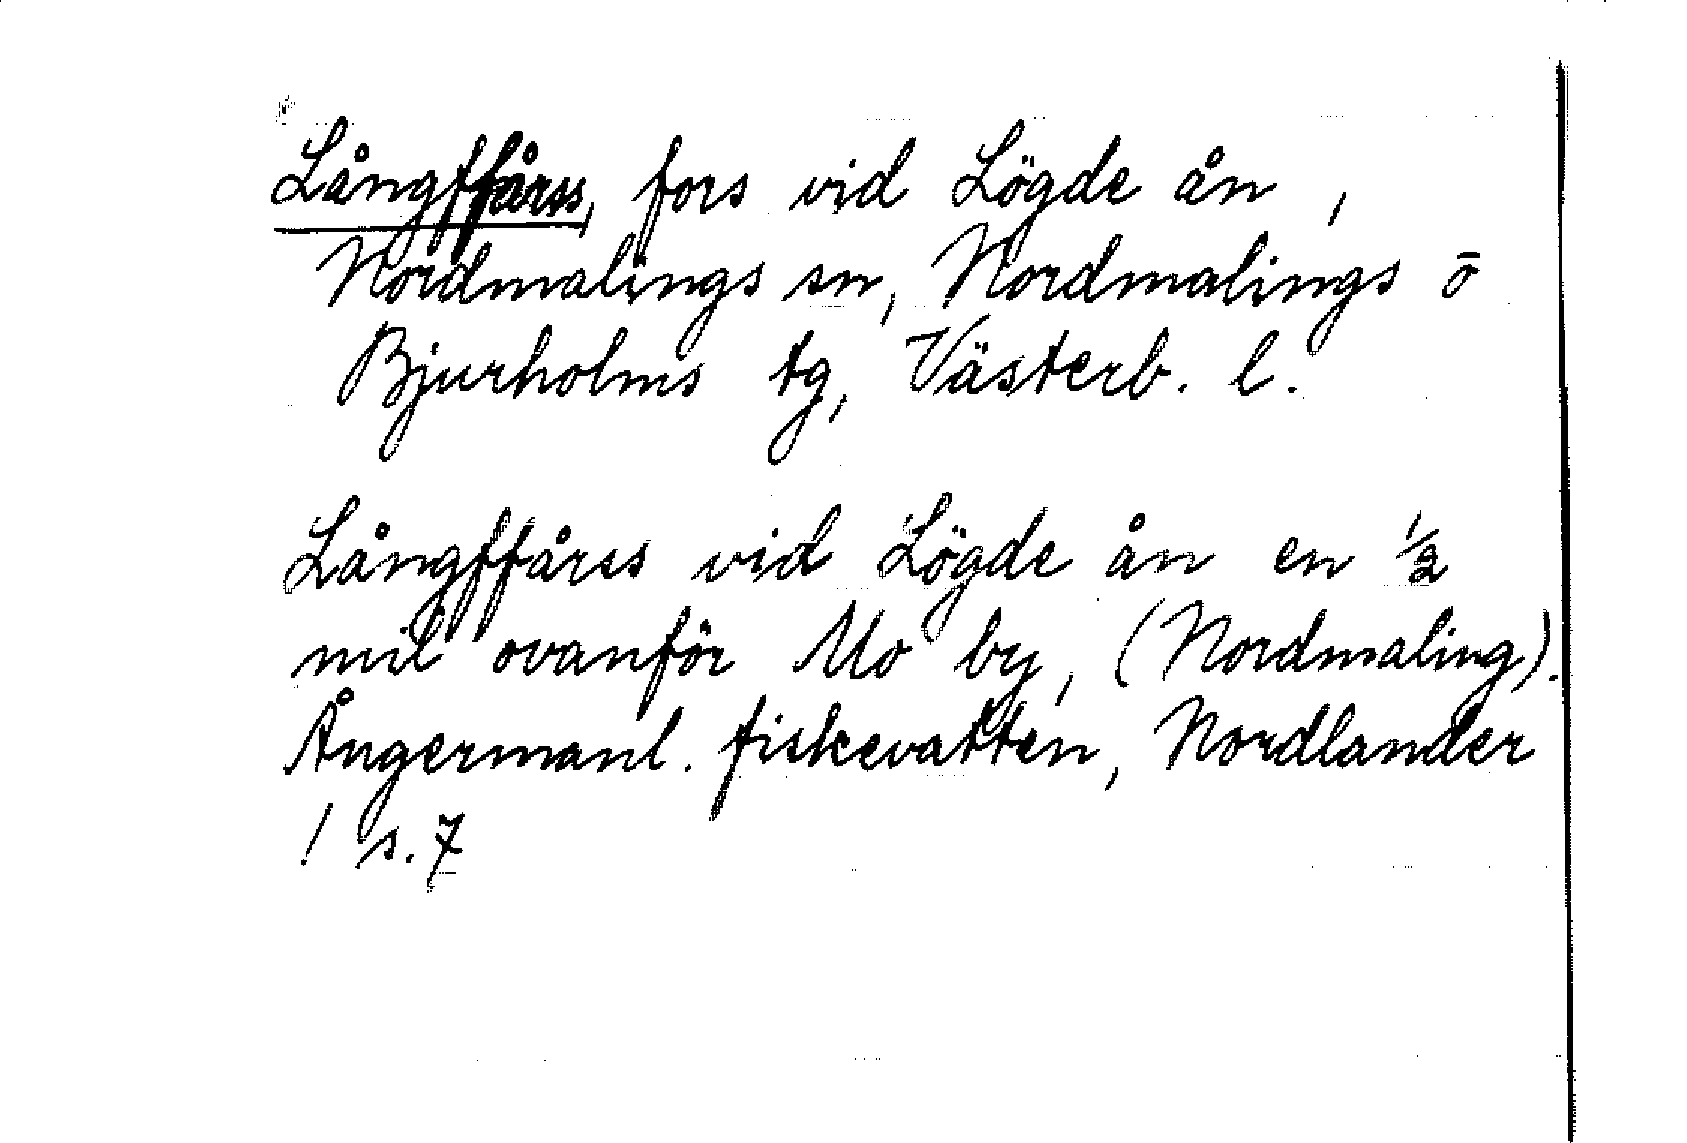 Långffårss, fors vid Lögde ån ,
Nordmalings sn, Nordmalings o
Bjurholms tg, Västerb. l.
Långffårss vid Lögde ån en 1/2
mil ovanför Mo by, (Nordmaling).
Ångermanl. fiskevatten, Nordlander
1 s. 7